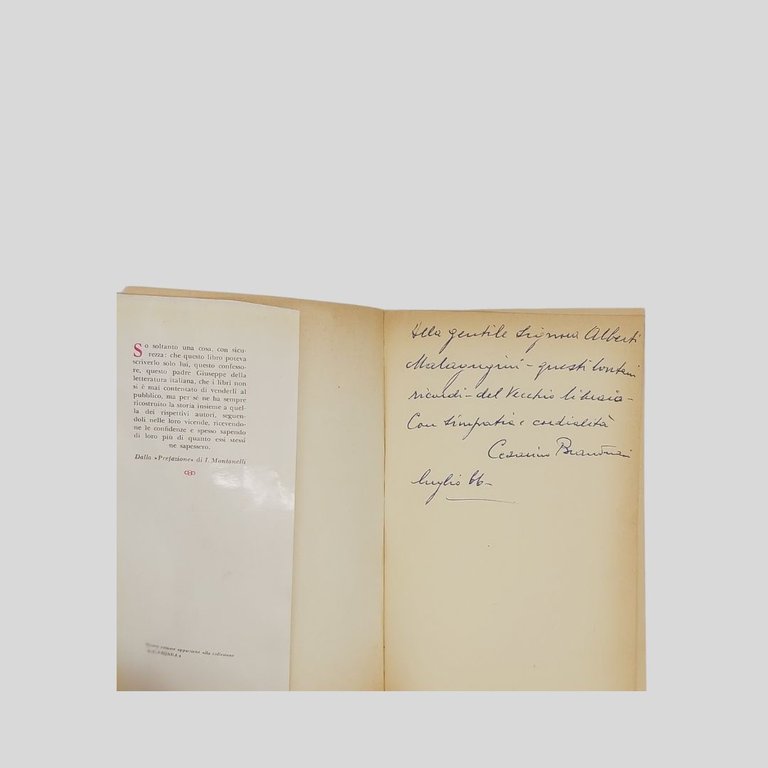 So soltanto una cosa, con sicu-
rezza: che questo libro poteva
scriverlo solo lui, questo confesso-
re, questo padre Giuseppe della
letteratura italiana, che i libri non
s'è mai contentato di venderli al
pubblico, ma per sé ne ha sempre
ricostruito la storia insieme a quel-
la dei rispettivi autori, seguen-
doli nelle loro vicende, ricevendo-
ne le confidenze e spesso sapendo
di loro più di quanto essi stessi
ne sapessero.
Dalla «Prefazione» di I. Montanelli
volume appartiene alla collezione
Alla gentile Signora Alberti
Malagugini - questi lontani
ricordi - del Vecchio libraio -
Con simpatia e cordialità
Cesarino Branduani
luglio 66 -